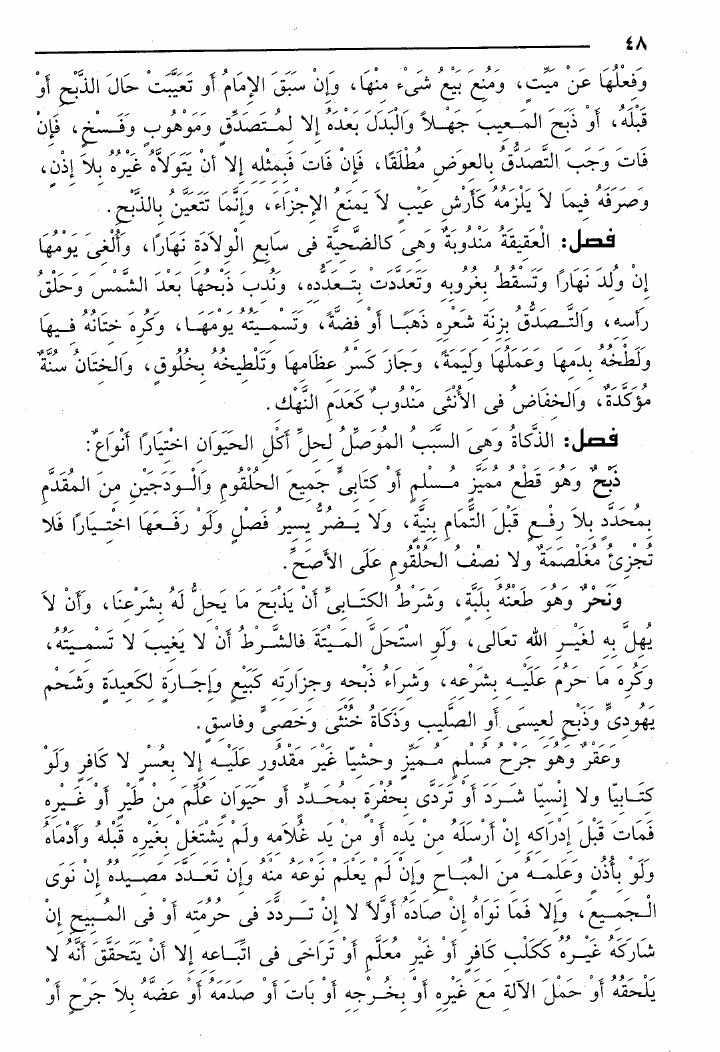 ٤٨
وَفِعْلُهَا عَنْ مَيِّتٍ، وَمُنِعَ بَيْعُ شَىْءٍ مِنْهَا، وَإِنْ سَبَقَ الإِمَامُ أَو تَعَيَّبَتْ حَالَ الذَّبْحِ أَوْ
قَبْلَهُ، أَوْ ذَبَحَ المَعِيبَ جَهْلاً وَالْبَدَلَ بَعْدَهُ إِلا لِمُتَصَدَّقٍ وَمَوْهُوبٍ وَفَسْخٍ، فَإِنْ
فَاتَ وَجَبَ التَّصَدُّقُ بِالعِوَضِ مُطْلَقًا، فَإِنْ فَاتَ فَبِمِثْلِهِ إِلا أَنْ يَتَوَلاَّهُ غَيْرُهُ بِلاَ إِذْنٍ،
وَصَرَفَهُ فِيمَا لاَ يَلْزَمُهُ كَأَرْشِ عَيْبٍ لاَ يَمْنَعُ الإِجْزَاءَ، وَإِنَّمَا تَتَعَيَّنُ بِالذَّبْحِ.
فصل: الْعَقِيقَةُ مَنْدُوبَةٌ وَهِىَ كَالضَّحِيَّةِ فِى سَابِعِ الوِلاَدَةِ نَهَارًا، وَأُلْغِىَ يَوْمُهَا
إِنْ وُلِدَ نَهَارًا وَتَسْقُطُ بِغُرُوبِهِ وَتَعَدَّدَتْ بِتَعَدُّدِهِ، وَنُدِبَ ذَبْحُهَا بَعْدَ الشَّمْسِ وَحَلْقُ
رَأْسِهِ، وَالتَّصَدُّقُ بِزِنَةِ شَعْرِهِ ذَهَبًا أَوْ فِضَّةً، وَتَسْمِيَتُهُ يَوْمَهَا، وَكُرِهَ خِتَانُهُ فِيهَا
وَلَطْخُهُ بِدَمِهَا وَعَمَلُهَا وَلِيمَةً، وَجَازَ كَسْرُ عِظَامِهَا وَتَلْطِيخُهُ بِخَلُوقٍ، وَالخِتَانُ سُنَّةٌ
مُؤَكَّدَةٌ، وَالخِفَاضُ فِى الأُنْثَى مَنْدُوبٌ كَعَدَمِ النَّهْكِ.
فصل: الذَّكَاةُ وَهِىَ السَّبَبُ المُوَصِّلُ لِحِلِّ أَكْلِ الحَيَوَانِ اخْتِيَارًا أَنْوَاعٌ:
ذَبْحٌ وَهُوَ قَطْعُ مُمَيِّزٍ مُسْلِمٍ أَوْ كِتَابِىٍّ جَمِيعَ الحُلْقُومِ وَالْوَدَجَيْنِ مِنَ المُقَدَّمِ
بِمُحَدَّدٍ بِلاَ رَفْعٍ قَبْلَ التَّمَامِ بِنِيَّةٍ، وَلا يَضُرُّ يَسِيرُ فَصْلٍ وَلَوْ رَفَعَهَا اخْتِيَارًا فَلا
تُجْزِئُ مُغَلْصَمَةٌ وَلا نِصْفُ الحُلْقُومِ عَلَى الأَصَحِّ.
وَنَحْرٌ وَهُوَ طَعْنُهُ بِلَبَّةٍ، وَشَرْطُ الكِتَابِىِّ أَنْ يَذْبَحَ مَا يَحِلُّ لَهُ بِشَرْعِنَا، وَأَنْ لاَ
يُهِلَّ بِهِ لِغَيْرِ اللهِ تَعَالَى، وَلَوِ اسْتَحَلَّ المَيْتَةَ فَالشَّرْطُ أَنْ لا يَغِيبَ لا تَسْمِيَتُهُ،
وَكُرِهَ مَا حَرُمَ عَلَيْهِ بِشَرْعِهِ، وَشِرَاءُ ذَبْحِهِ وَجِزَارَتِهِ كَبَيْعٍ وَإِجَارَةٍ لِكَعِيدِهِ وَشَحْمِ
يَهُودِىٍّ وَذَبْحٍ لِعِيسَى أَوِ الصَّلِيبِ وَذَكَاةُ خُنْثَى وَخَصِىٍّ وَفَاسِقٍ.
وَعَقْرٌ وَهُوَ جَرْحُ مُسْلِمٍ مُمَيِّزٍ وَحْشِيًّا غَيْرَ مَقْدُورٍ عَلَيْهِ إِلا بِعُسْرٍ لا كَافِرٍ وَلَوْ
كِتَابِيًّا وَلا إِنْسِيًّا شَرَدَ أَوْ تَرَدَّى بِحُفْرَةٍ بِمُحَدَّدٍ أَو حَيَوَانٍ عُلِّمَ مِنْ طَيْرٍ أَوْ غَيْرِهِ
فَمَاتَ قَبْلَ إِدْرَاكِهِ إِنْ أَرْسَلَهُ مِنْ يَدِهِ أَوْ مِنْ يَدِ غُلاَمِهِ وَلَمْ يَشْتَغِلْ بِغَيْرِهِ قَبْلَهُ وَأَدْمَاهُ
وَلَوْ بِأُذُنٍ وَعَلِمَهُ مِنَ المُبَاحِ وَإِنْ لَمْ يَعْلَمْ نَوْعَهُ مِنْهُ وَإِنْ تَعَدَّدَ مَصِيدُهُ إِنْ نَوَى
الْجَمِيعَ، وَإِلا فَمَا نَوَاهُ إِنْ صَادَهُ أَوَّلاً لا إِنْ تَرَدَّدَ فِى حُرْمَتِهِ أَوْ فِى المُبِيحِ إِنْ
شَارَكَهُ غَيْرُهُ كَكَلْبِ كَافِرٍ أَوْ غَيْرِ مُعَلَّمٍ أَوْ تَرَاخَى فِى اتِّبَاعِهِ إِلا أَنْ يَتَحَقَّقَ أَنَّهُ لا
يَلْحَقُهُ أَوْ حَمْلَ الآلَةِ مَعَ غَيْرِهِ أَوْ بِخُرْجِهِ أَوْ بَاتَ أَوْ صَدَمَهُ أَوْ عَضَّهُ بِلاَ جَرْحٍ أَوْ